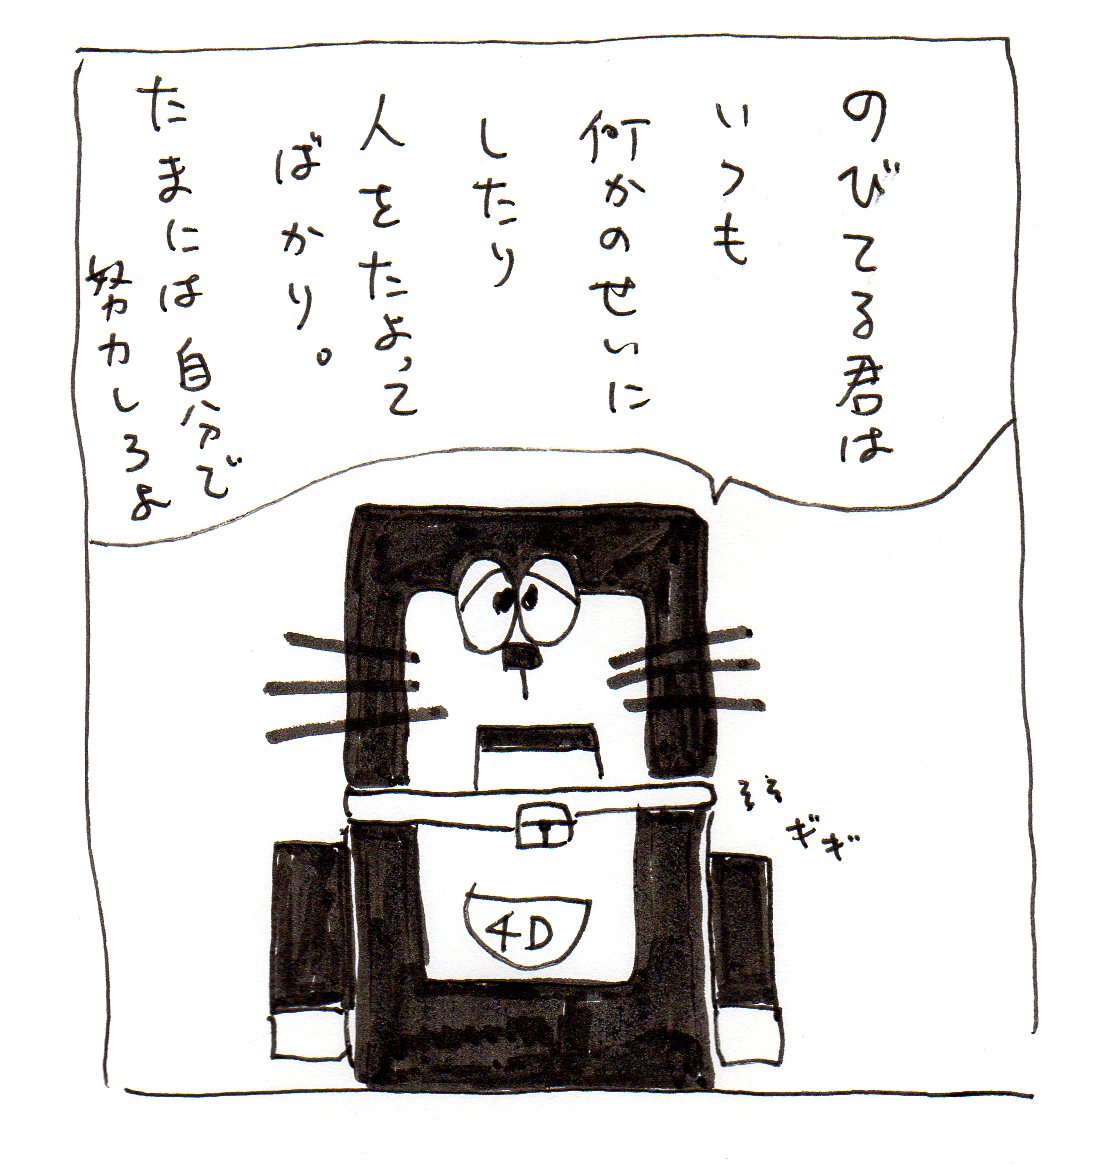 のびてる君は
いつも
何かのせいに
したり
人をたよって
ばかり。
たまには自分で
努力しろよ
ギギ
4D